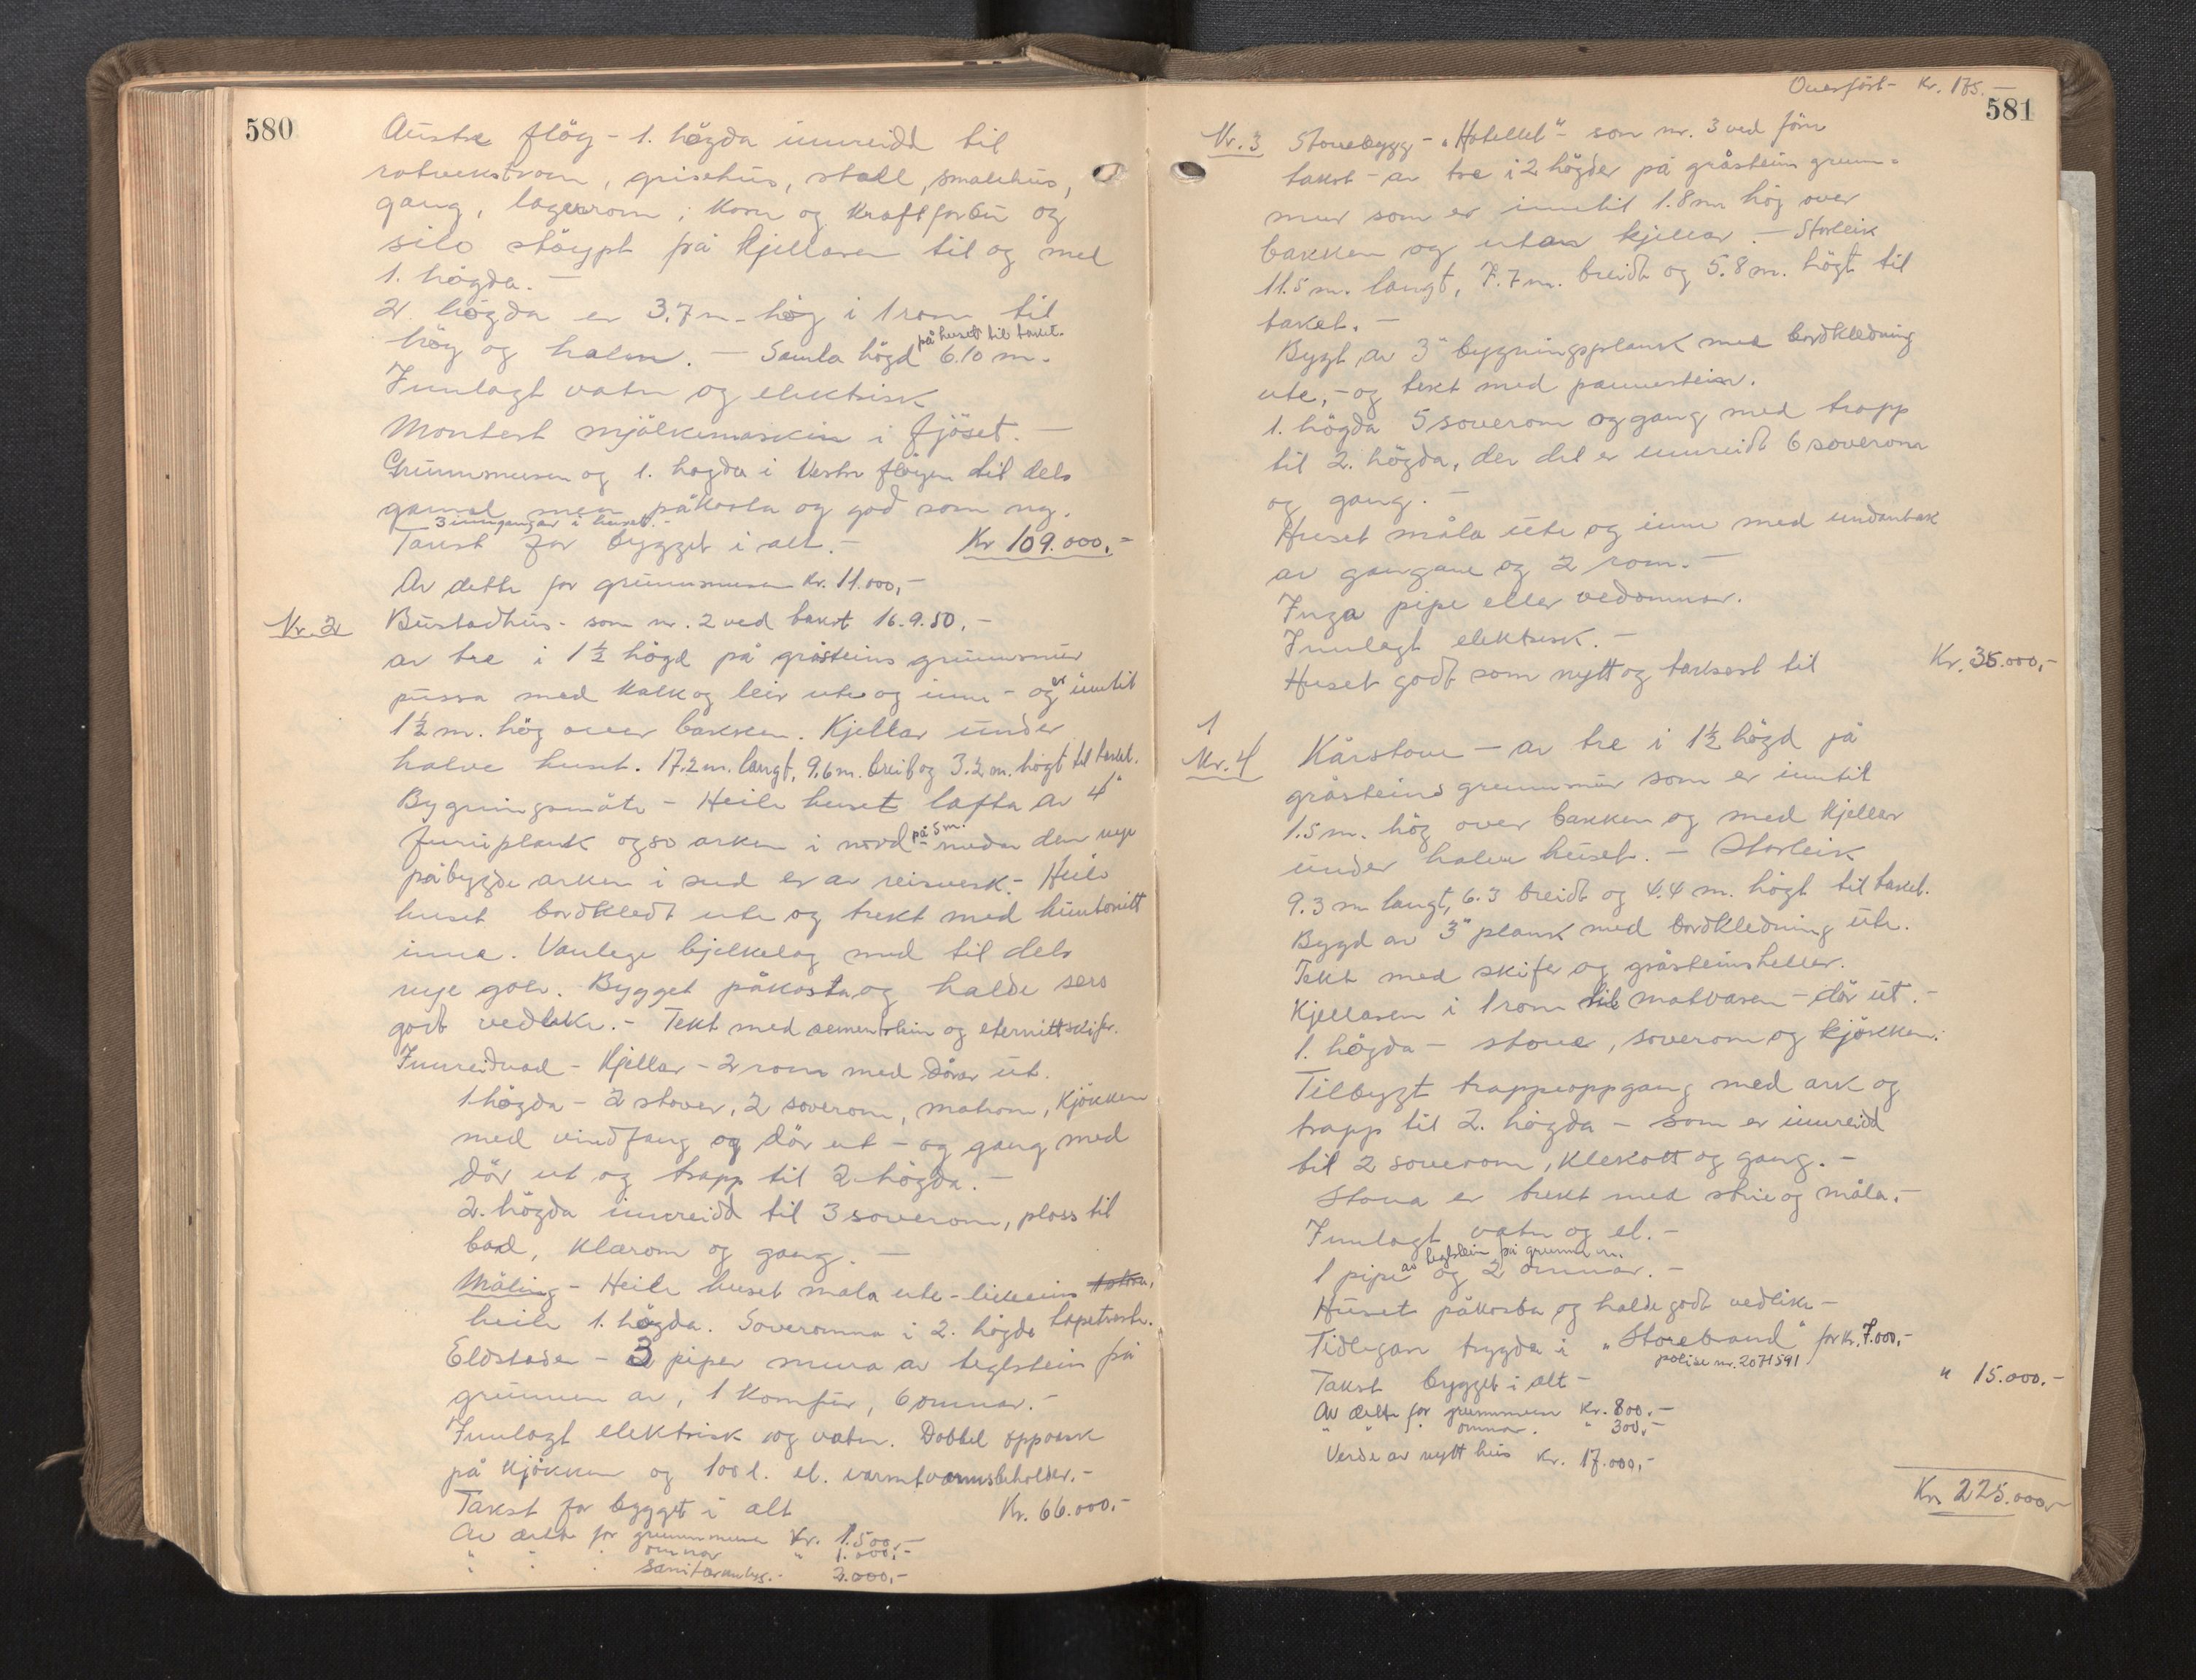 580
Austre flög - 1. högda innreidd til
rotvekstrom, grisehus, stall, smalehus,
gang, lagerrom, korn og kraftforbu og
silo støypt frå kjellaren til og med
1. högda. -
2 högda er 3.7 m. høg i 1 rom til
høy og halm. - Samla högd på huset til taket. 6.10 m.
Innlagt vatn og elektrisk
Montert mjølkemaskin i fjöset. -
Grunnmuren og 1. högda i Vestre flögen til dels
gamal men påkosta og god som ny.
3 inngangar i huset. -
Takst for bygget i alt. - Kr 109.000.-
Av dette for grunnmuren Kr. 11.000,-
Nr. 2 Bustadhus - som nr. 2 ved takst 16.9.50. -
av tre i 1½ högd på gråsteins grunnmur
pussa med kalk og leir ute og inne - og er inntil
1½ m. høg over bakken. Kjellar under
halve huset. 17.2 m. langt, 9.6 m. breit og 3.2 m. högt til taket.
Bygningsmåte - Heile huset lafta av 4"
furuplank også arken i nord på 5 m. - medan den nye
påbygde arken i sud er av reisverk. - Heile
huset bordkledt ute og trekt med huntonitt
inne. Vanlege bjelkelag med til dels
nye golv. Bygget påkosta og halde sers
godt vedlike. - Tekt med sementstein og eternittskifer.
Innreidnad - Kjellar - 2 rom med dörar ut.
1 högda - 2 stover, 2 soverom, matrom, kjökken
med vindfang og dör ut - og gang med
dör ut og trapp til 2 högda. -
2. högda innreidd til 3 soverom, plass til
bad, klærom og gang. -
Måling - Heile huset mala ute - likeeins
heile 1. högda. Soveromma i 2. högda tapetserte.
Eldstader - 3 piper mura av teglstein frå
grunnen av, 1 komfur, 6 omnar. -
Innlagt elektrisk og vatn. Dobbel oppvask
på kjökken og 100 l. el. varmtvannsbeholder. -
Takst for bygget i alt Kr. 66.000.-
Av dette for grunnmuren Kr. 1.500,-
" " " omnar " 1.000,-
" " " Sanitæranlegg. - 3.000,-
Overført - Kr. 175. -
581
Nr. 3 Stovebygg - "Hotellet" - som nr. 3 ved förre
takst - av tre i 2 högder på gråsteins grunn-
mur som er inntil 1.8 m høg over
bakken og utan kjellar. - Storleik
11.5 m. langt, 7.7 m. breidt og 5.8 m. högt til
taket. -
Bygt av 3" bygningsplank med bordkledning
ute, - og tekt med pannestein.
1. högda 5 soverom og gang med trapp
til 2. högda, der det er innreidt 6 soverom
og gang. -
Huset måla ute og inne med undantak
av gangane og 2 rom. -
Inga pipe eller vedomnar.
Innlagt elektrisk. -
Huset godt som nytt og taksert til Kr. 35.000,-
1
Nr. 4 Kårstove - av tre i 1½ högd på
gråsteins grunnmur som er inntil
1.5 m. høg over bakken og med kjellar
under halve huset. - Storleik
9.3 m langt, 6.3 breidt og 4.4 m. högt til taket.
Bygd av 3" plank med bordkledning ute.
Tekt med skifer og gråsteinsheller.
Kjellaren i 1 rom til matvaren - dör ut. -
1. högda - stove, soverom og kjökken.
Tilbygt trappeoppgang med ark og
trapp til 2. högda - som er innreidd
til 2 soverom, kleskott og gang. -
Stova er trekt med strie og måla. -
Innlagt vatn og el. -
1 pipe av teglstein frå grunnen. og 2 omnar. -
Huset påkosta og halde godt vedlike -
Tidlegare trygda i "Storebrand" for kr. 7.000,-
polise nr. 2071591
Takst bygget i alt - " 15.000.-
Av dette for grunnmuren Kr. 800.-
" " " omnar. " 300,-
Verde av nytt hus Kr. 17.000,-
Kr. 225.000,-